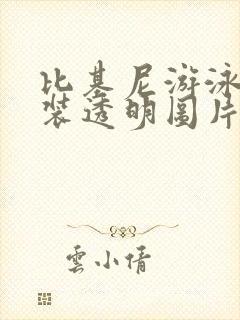 比基尼游泳
装透明图片
雲小倩